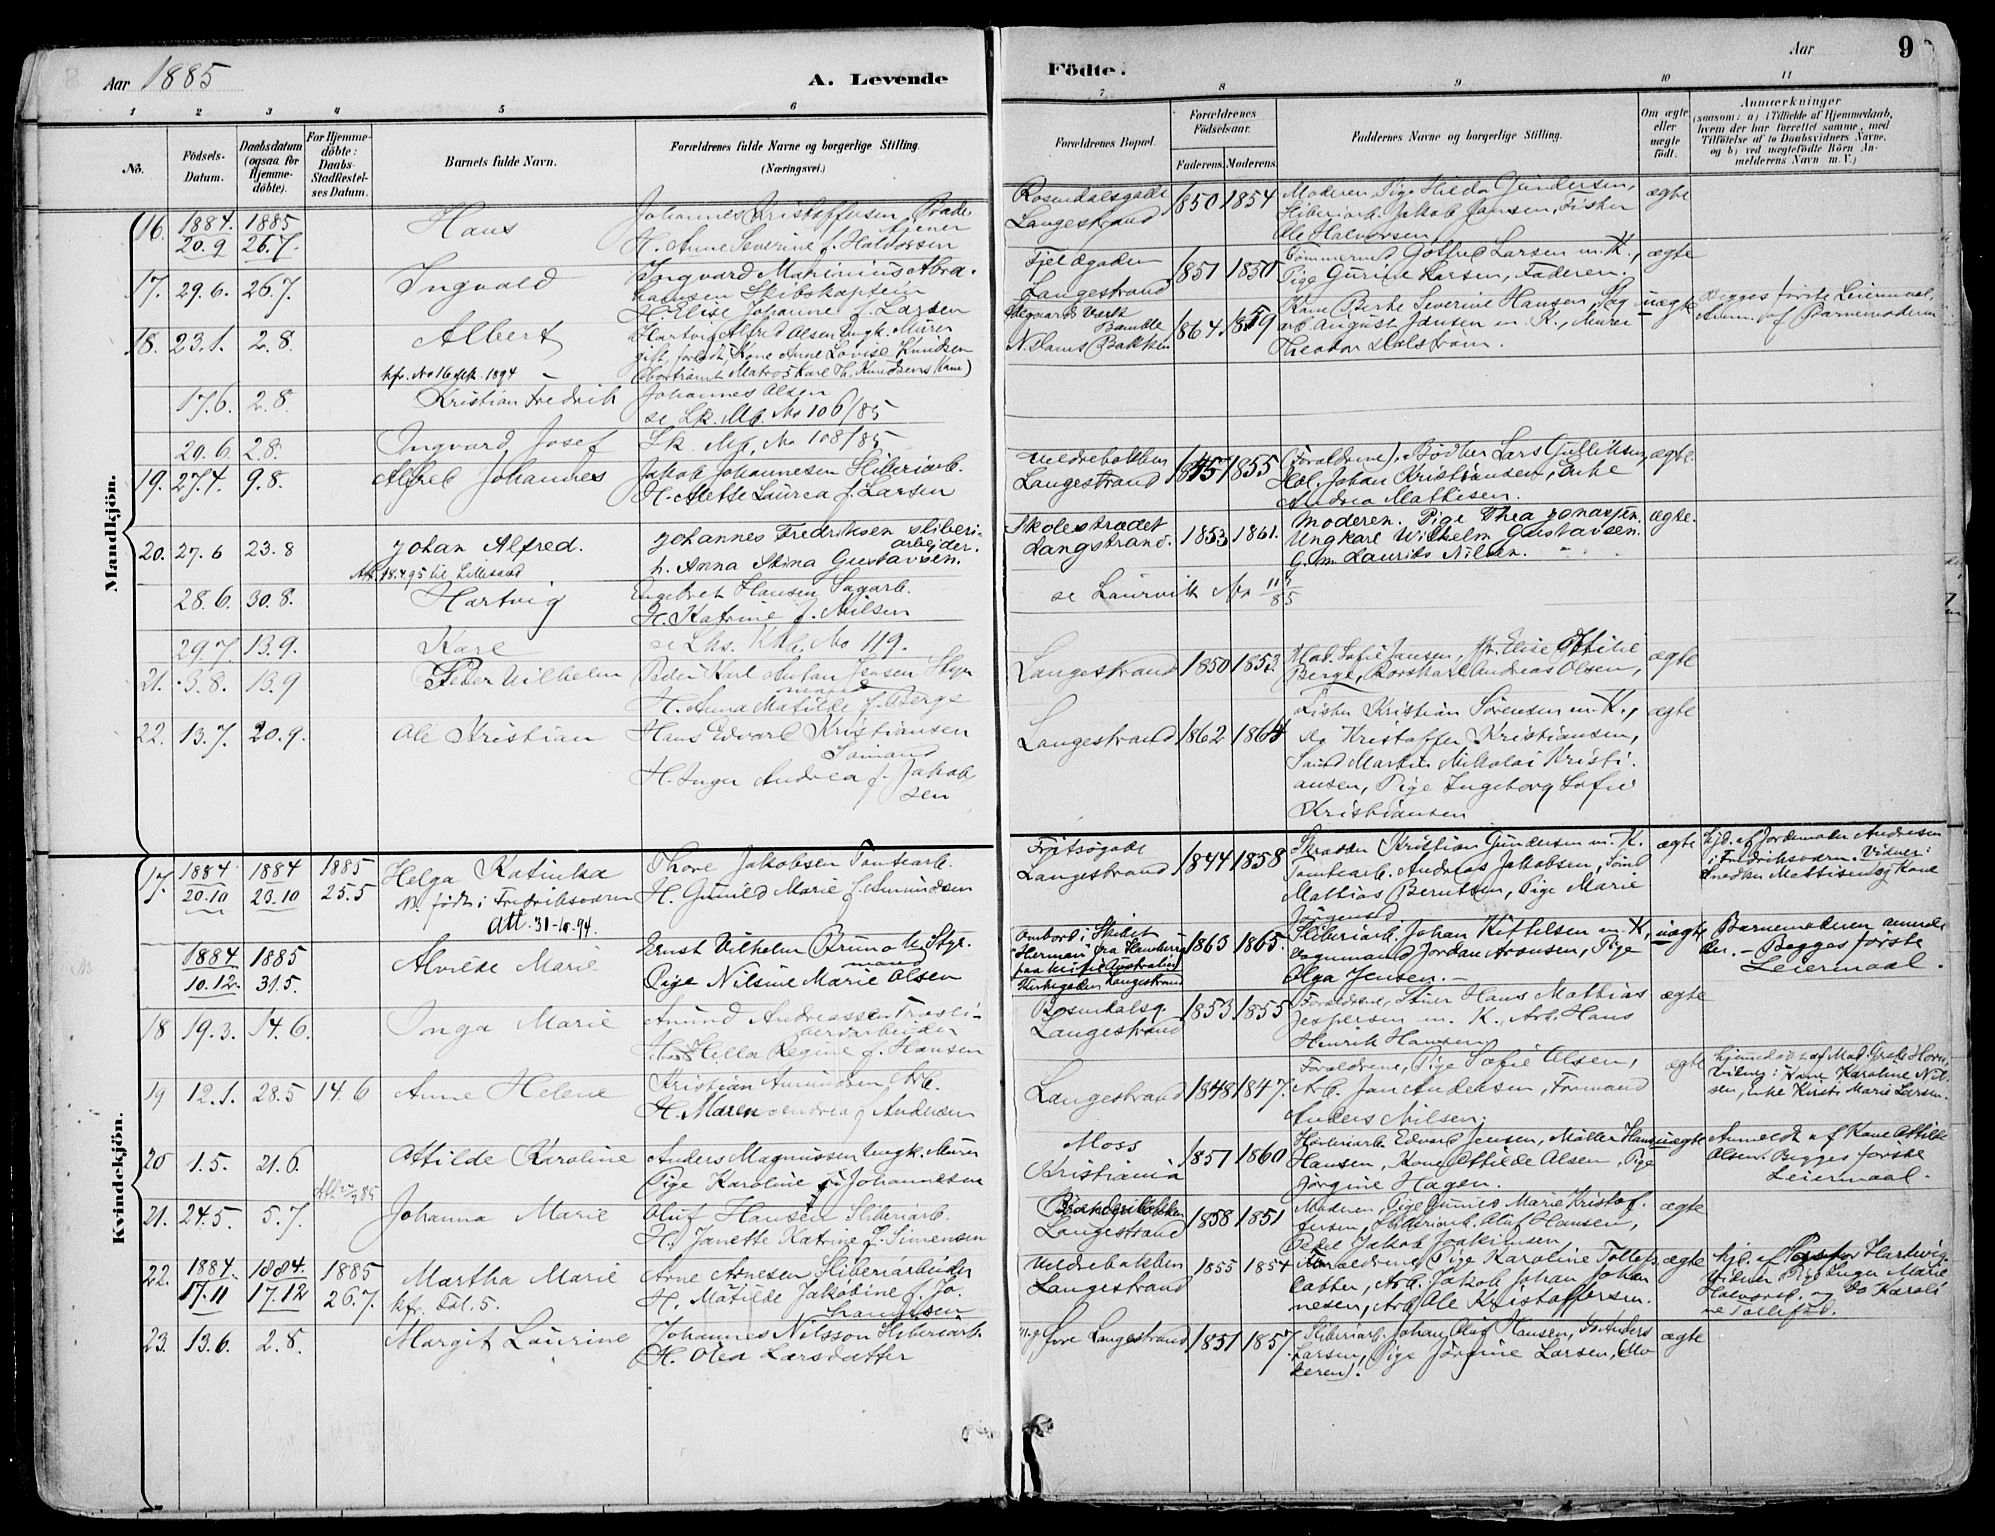 Aar 1885
A. Levende
Födte.
Aar
9
1 2 3 4 5 6 7 8 9 10 11
No.
Födsels-
Datum.
Daabsdatum
(ogsaa for
Hjemme-
döbte).
For Hjemme-
döbte:
Daabs-
Stadfæstel-
ses Datum.
Barnets fulde Navn.
Forældrenes fulde Navne og borgerlige Stilling.
(Næringsvei.)
Forældrenes Bopæl.
Forældrenes
Födselsaar.
Faderens. Moderens.
Faddernes Navne og borgerlige Stilling.
Om ægte
eller
uægte
födt.
Anmærkninger
(saasom: a) i Tilfælde af Hjemmedaab,
hvem der har forrettet samme, med
Tilföielse af to Daabsvidners Navne.
og b) ved uægtefödte Börn An-
melderens Navn m. V.)
Mandkjön.
16. 1884. 1885 Hans Johannes Kristoffersen
20.9 26.7 H. Anne Severine f. Halvorsen
Rosendalsgade 1850 1854 Moderen, Pige Hilda Gundersen, ægte
Langestrand Sliberiarb. Jakob Jansen, Fisker
Ole Halvorsen
17. 29.6. 26.7. Ingvald Ingvard Marinius Abra-
hamsen Skibskaptein
H. Elise Johanne f. Larsen
Langestrand 1851 1850 Tømmermd Gotfred Larsen m. K., ægte
Pige Gurine Larsen, Faderen.
18. 23.1. 2.8. Albert Hartvig Alfred Olsen Ungk. Murer
gift forladt Kone Anne Lovise Knudsen
kfr. No 16 1894 (bortrømt Matros Karl Th. Knudsens Kone)
Bamble
Bakken 1864 1859 Kone Berte Severine Hansen, Sag-
arb August Jansen m. K., Murer
Theodor Dalstrøm.
uægte Begges første Leiermaal.
Anm. af Barnemoderen
17.6. 2.8. Kristian Fredrik Johannes Olsen
se Lk. Mb. No 106/85
20.6. 2.8. Ingvard Josef Lk. Mb. No 108/85
19. 27.4. 9.8. Alfred Johannes Jakob Johannesen Sliberiarb.
H. Mette Laurea f. Larsen
Langestrand 1845 1855 (Forældrene), Bødker Lars Gulliksen, ægte.
Johan Kristiansen, Enke
Andrea Mathisen.
20. 27.6 23.8 Johan Alfred. Johannes Fredriksen sliberi-
arbejder.
Att. 18.4.95 til Lillesand h. Anna Stina Gustavsen.
Skolestrædet
Langstrand. 1853 1861. Moderen. Pige Thea Jonassen. ægte.
Ungkarl Wilhelm Gustavsen.
G. m. Laurits Nilsen.
28.6. 30.8. Hartvig Engebret Hansen Sagarb.
H. Katrine f. Nilsen
se Laurvik No 115/85
29.7. 13.9. Karl se Lhs. Kb. No 119.
21. 3.8. 13.9 Peder Vilhelm Peder Karl Anton Jensen Styr
mand
H. Anna Matilde f. Berge
Langestrand 1850 1853 Mad. Sofie Jansen, Elise Otilie ægte
Berge, Andreas Olsen,
22. 13.7. 20.9. Ole Kristian Hans Edvard Kristiansen
Sømand
H. Inger Andrea f. Jakob
sen
Langestrand 1862 1864 Fisker Kristian Sørensen m. K., ægte
do Kristoffer Kristiansen,
Sømd Martin Nikolai Kristi-
ansen, Pige Ingeborg Sofie
Kristiansen
Kvindekjön.
17. 1884 1884 1885 Helga Katinka Thore Jakobsen Tomtearb.
20.10 23.10 25.5 N. født i Fredriksværn H. Gunild Marie f. Amundsen
Att. 31-10-94.
Fritsøgade
Langestrand 1844 1858 Skrædder Kristian Gundersen m. K. ægte
Tomtearb. Andreas Jakobsen, Sømd
Mathias Berntsen, Pige Marie
Jørgensen
hjd. af Jordemoder Andresen
i Fredriksværn. Vidner:
Mathisen og Kone
1884 1885 Alvilde Marie Ernst Vilhelm Bruno Styr-
10.12. 31.5. mand
Pige Nilsine Marie Olsen
ombord i Skibet
Herman fra Hamburg
paa Reise Australien
Kirkegaden Langestrand
1863 1865. Sliberiarb. Johan Kittelsen m. K, uægte
Vognmand Jordan Aronsen, Pige
Olga Jensen.
Barnemoderen anmel-
der. - Begges første
Leiermaal.
18 19.3. 14.6. Inga Marie Amund Andreassen Træsli-
beriarbeider
Hella Regine f. Hansen
Rosendalsg.
Langestrand 1853 1855 Forældrene, Hans Mathias ægte
Jespersen m. K., Arb. Hans
Henrik Hansen
19 12.1. 28.5 14.6 Anne Helene Kristian Amundsen, Arb.
H. Maren Andrea f. Andersen
Langestrand 1848 1847. Forældrene, Pige Sofie Olsen, ægte
Arb. Jan Andersen, Formand
Anders Nilsen.
hjemmedøbt af Mad. Grete Horn,
Vidner: Kone Karoline Nil-
sen, Enke Kirsti Marie Larsen.
20 1.5. 21.6. Ottilde Karoline Anders Magnussen Ungk. Murer
Pige Karoline Johannesen
Moss
Kristiania 1851 1860 Høvleriarb. Edvard Jensen, Møller Hans uægte
Hansen, Kone Ottilde Olsen, Pige
Jørgine Hagen.
Anmeldt af Kone Ottilde
Olsen. Begges første
Leiermaal.
21. 24.5. 5.7. Johanna Marie Oluf Hansen Sliberiarb.
H. Janette Katrine f. Simensen
Langestrand 1858 1851 Moderen, Pige Gunild Marie Kristof- ægte
fersen, Sliberiarb. Oluf Hansen,
Pedel Jakob Joakimsen
22. 1884. 1884. 1885 Martha Marie Arne Arnesen Sliberiarbeider
17.11 17.12 26.7. kfr. Fol. 5. H. Matilde Jakobine f. Jo-
hannesen
Meldrebakken
Langestrand 1855 1854 Forældrene, Pige Karoline Tollefs- ægte
datter, Arb. Jakob Johan Johan
nesen, Arb. Ole Kristoffersen.
hjd. af Pastor Hartwig
Vidner Pige Inger Marie
Halvorsd. og do Karoli
ne Tollefsd.
23. 13.6. 2.8. Margit Laurine Johannes Nilsson Sliberiarb.
H. Olea Larsdatter
Øvre Langestrand 1851 1857. Sliberiarb. Johan Oluf Hansen, do Anders ægte
Larsen, Pige Jørgine Larsen, (Mo-
deren).